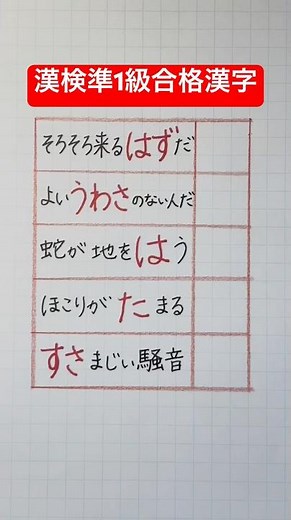 漢検準1級合格漢字
そろそろ来るはずだ
よいうわさのない人だ
蛇が地をはう
ほこりがたまる
すさまじい騒音